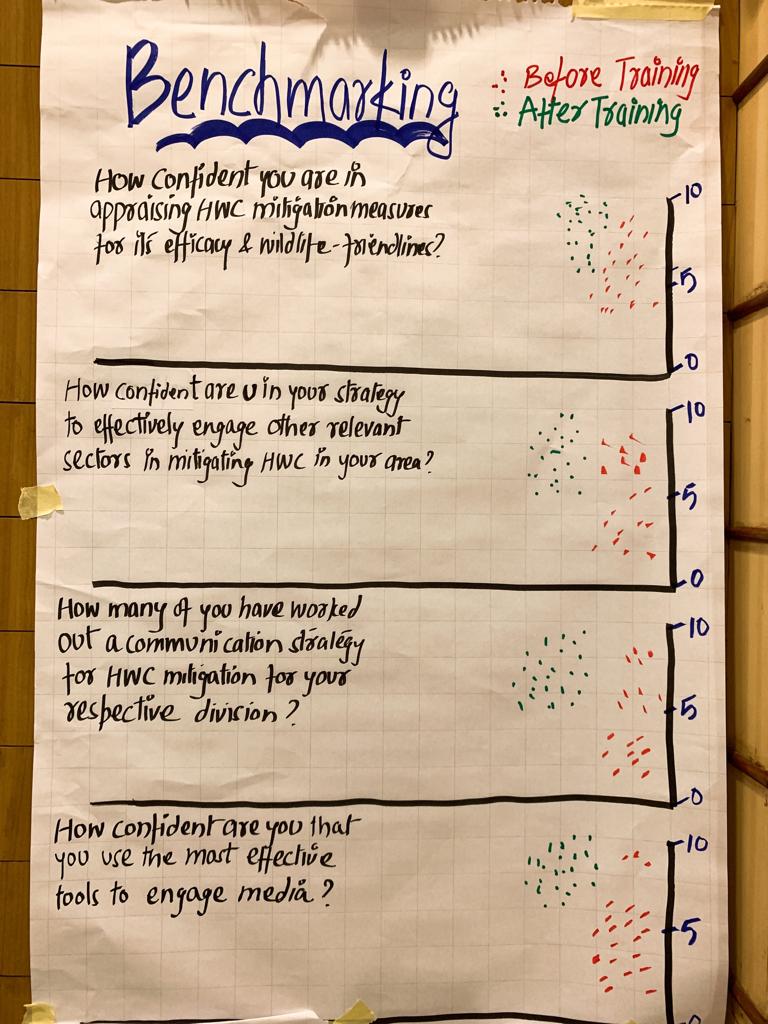 Benchmarking
Before Training
After Training
How confident you are in
appraising HWC mitigation measures
for its efficacy & wildlife-friendlines?
10
5
0
How confident are u in your strategy
to effectively engage other relevant
sectors in mitigating HWC in your area?
10
5
0
How many of you have worked
out a communication strategy
for HWC mitigation for your
respective division?
10
5
0
How confident are you that
you use the most effective
tools to engage media?
10
5
0